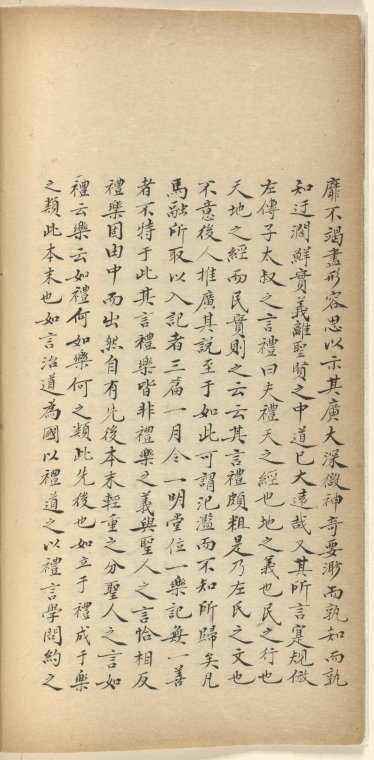 靡不竭盡形容思以示其廣大深微神奇要渺而孰知而孰
知迂濶鮮實義離聖賢之中道已大遠哉又其所言寔規倣
左傳子太叔之言禮曰夫禮天之經也地之義也民之行也
天地之經而民實則之云云其言禮頗粗是乃左氏之文也
不意後人推廣其說至于如此可謂氾濫而不知所歸矣凡
馬融所取以入記者三篇一月令一明堂位一樂記無一善
者不特于此其言禮樂皆非禮樂之義與聖人之言恰相反
禮樂固由中而出然自有先後本末輕重之分聖人之言如
禮云樂云如禮何如樂何之類此先後也如立于禮成于樂
之類此本末也如言治道為國以禮道之以禮言學問約之